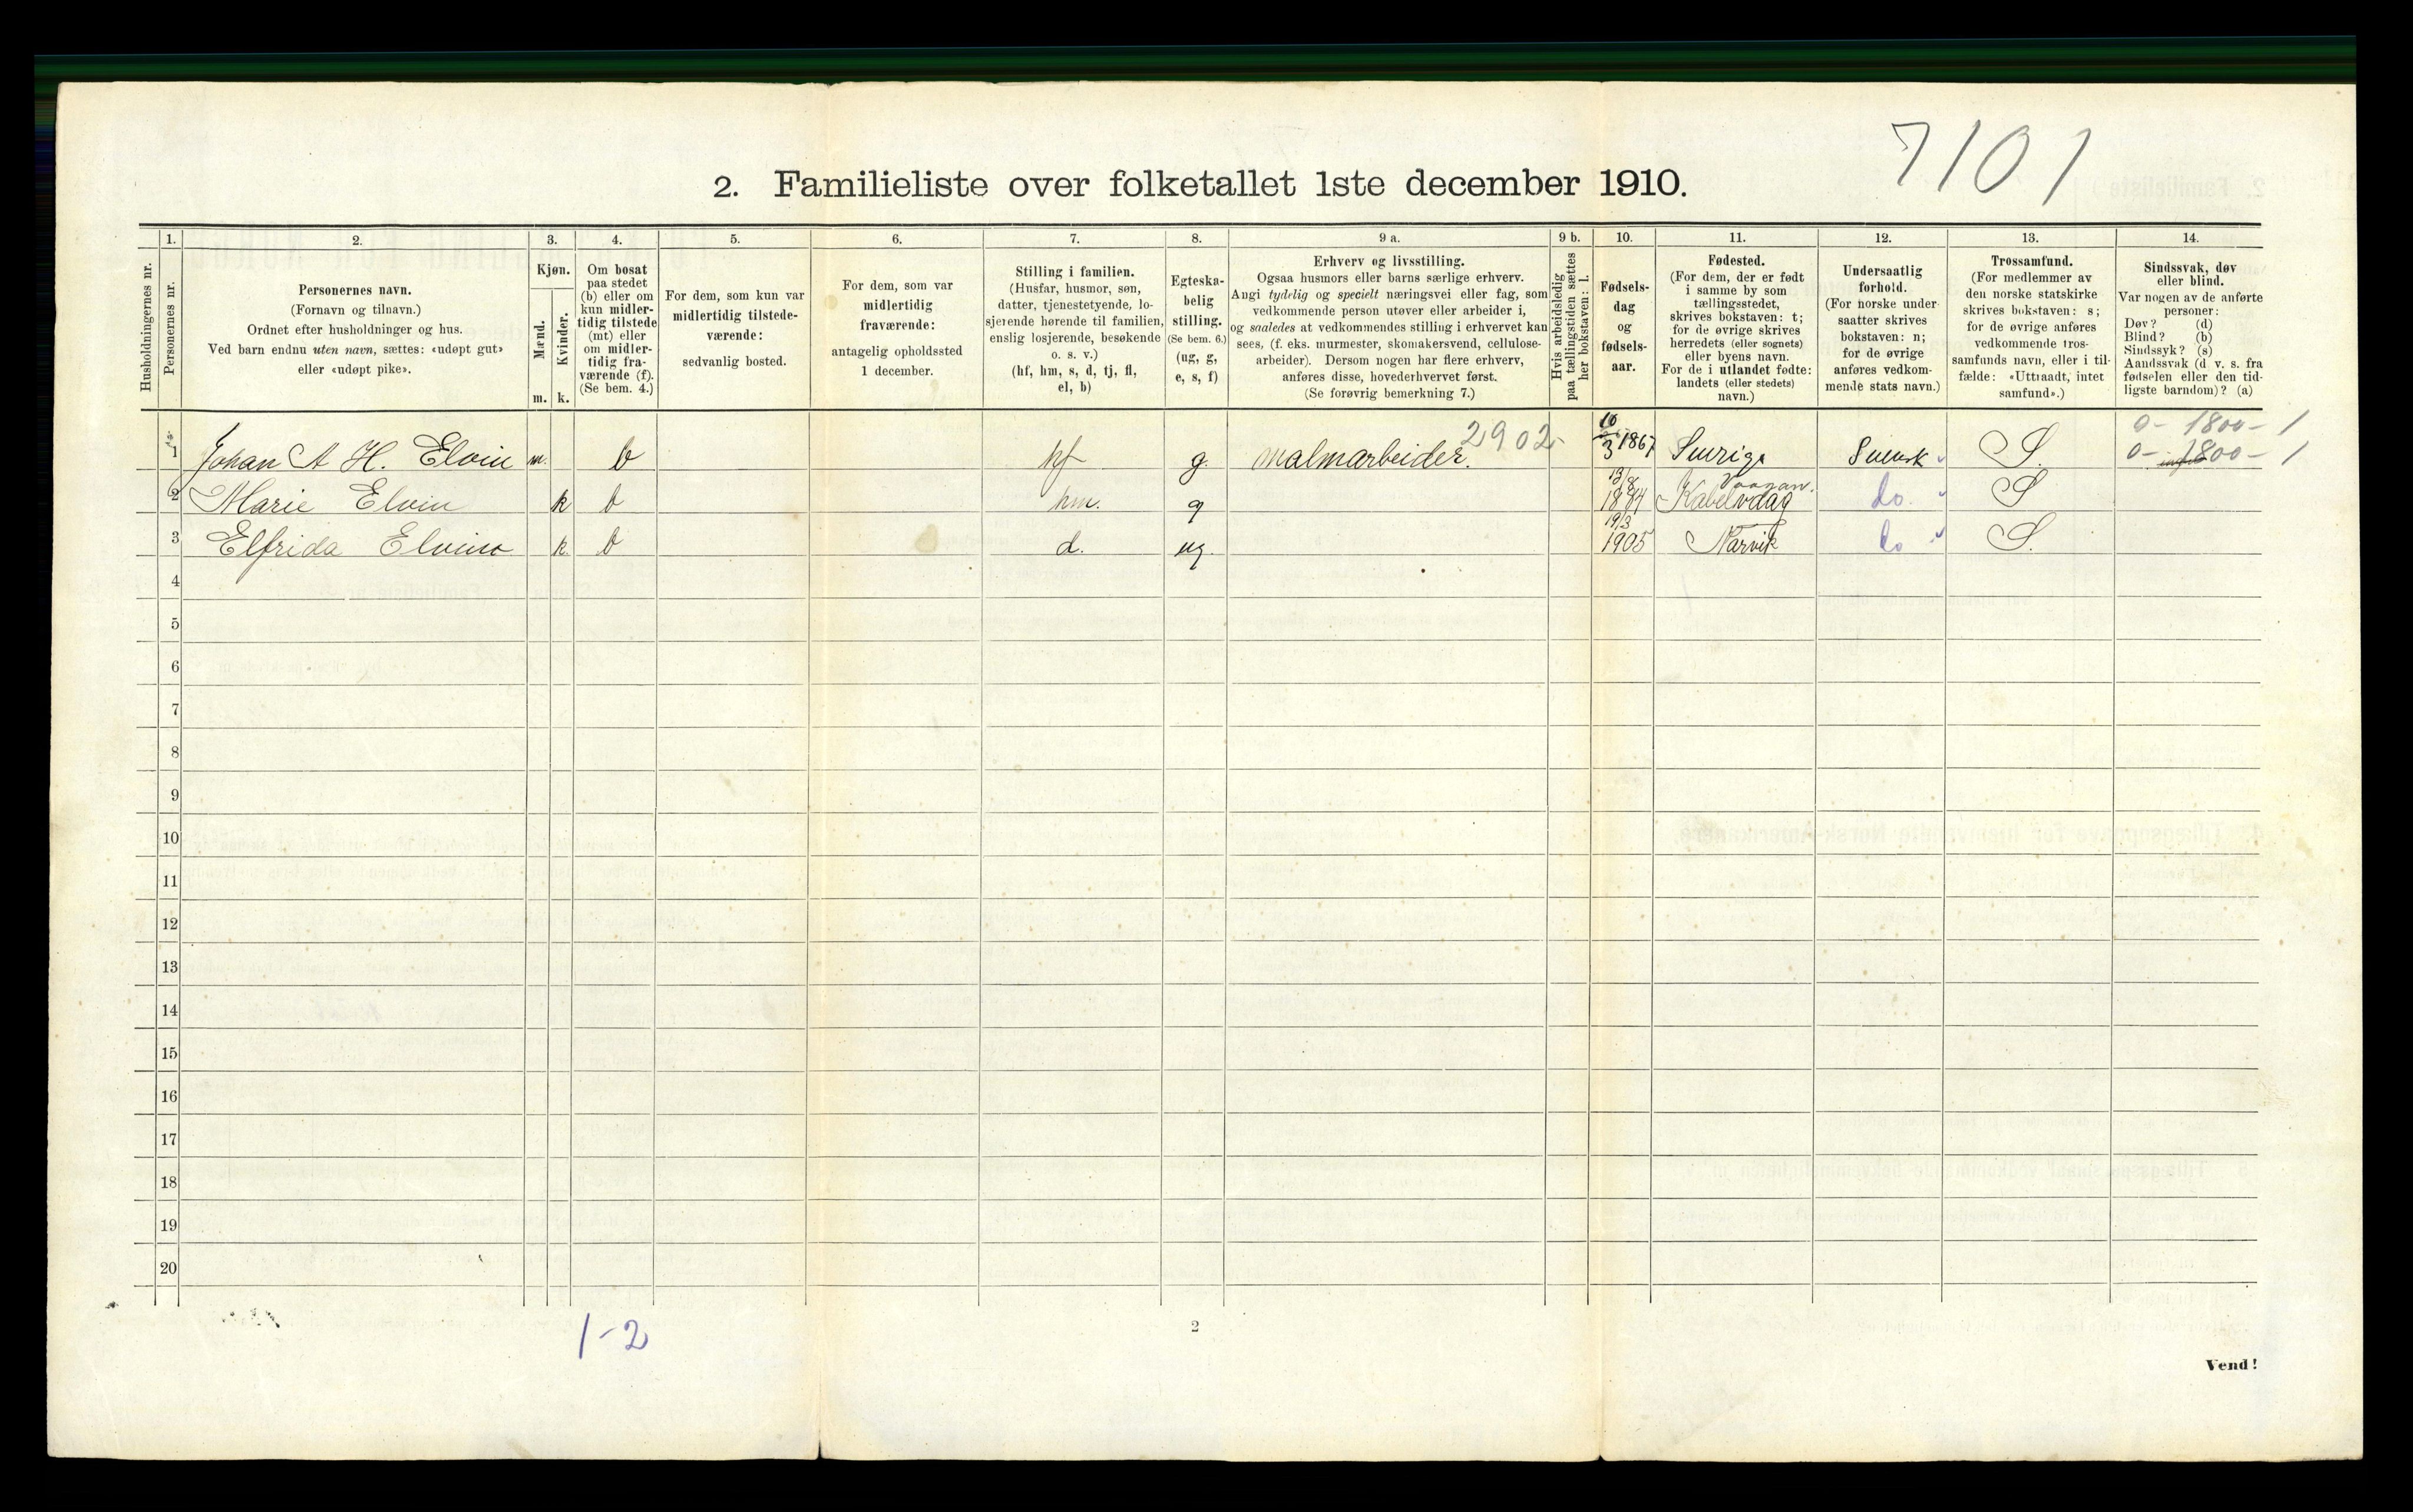 7101
2. Familieliste over folketallet 1ste december 1910.
1. 2. 3. 4. 5. 6. 7. 8. 9 a. 9 b. 10. 11. 12. 13. 14.
Husholdningernes nr.
Personernes nr.
Personernes navn.
(Fornavn og tilnavn.)
Ordnet efter husholdninger og hus.
Ved barn endnu uten navn, sættes: «udøpt gut»
eller «udøpt pike».
Kjøn.
Mænd.
Kvinder.
m. k.
Om bosat
paa stedet
(b) eller om
kun midler-
tidig tilstede
(mt) eller
om midler-
tidig fra-
værende (f).
(Se bem. 4.)
For dem, som kun var
midlertidig tilstede-
værende:
sedvanlig bosted.
For dem, som var
midlertidig
fraværende:
antagelig opholdssted
1 december.
Stilling i familien.
(Husfar, husmor, søn,
datter, tjenestetyende, lo-
sjerende hørende til familien,
enslig losjerende, besøkende
o. s. v.)
(hf, hm, s, d, tj, fl,
el, b)
Egteska-
belig
stilling.
(Se bem. 6.)
(ug, g,
e, s, f)
Erhverv og livsstilling.
Ogsaa husmors eller barns særlige erhverv.
Angi tydelig og specielt næringsvei eller fag, som
vedkommende person utøver eller arbeider i,
og saaledes at vedkommendes stilling i erhvervet kan
sees, (f. eks. murmester, skomakersvend, cellulose-
arbeider). Dersom nogen har flere erhverv,
anføres disse, hovederhvervet først.
(Se forøvrig bemerkning 7.)
Hvis arbeidsledig
paa tællingstiden sættes
her bokstaven: l.
Fødsels-
dag
og
fødsels-
aar.
Fødested.
(For dem, der er født
i samme by som
tællingsstedet,
skrives bokstaven: t;
for de øvrige skrives
herredets (eller sognets)
eller byens navn.
For de i utlandet fødte:
landets (eller stedets)
navn.)
Undersaatlig
forhold.
(For norske under-
saatter skrives
bokstaven: n;
for de øvrige
anføres vedkom-
mende stats navn.)
Trossamfund.
(For medlemmer av
den norske statskirke
skrives bokstaven: s;
for de øvrige anføres
vedkommende tros-
samfunds navn, eller i til-
fælde: «Uttraadt, intet
samfund».)
Sindssvak, døv
eller blind.
Var nogen av de anførte
personer:
Døv? (d)
Blind? (b)
Sindssyk? (s)
Aandssvak (d. v. s. fra
fødselen eller den tid-
ligste barndom)? (a)
2902- 0- 1800- 1
1 Johan A H. Elvin m. b hf g. Malmarbeider. 10/3 1867 Sverige Svensk S. 0- 1800- 1
Vaagan.
2 Marie Elvin k b hm. g 1884 Kabelvaag do. S
3 Elfrida Elvina k. b d. ug. 19/3 1905 Narvik do S.
4
5
6
7
8
9
10
11
12
13
14
15
16
17
18
19
20
1-2
2
Vend!